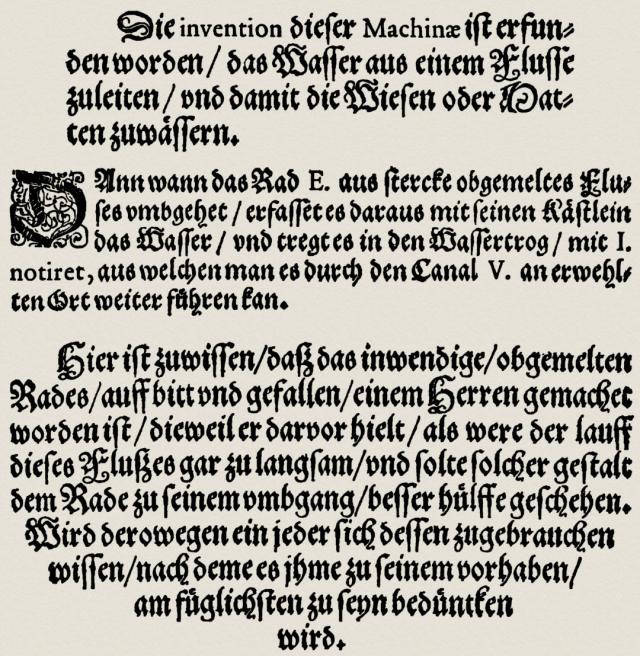 Die invention dieser Machinæ ist erfun⸗
den worden / das Wasser aus einem Flusse
zuleiten / vnd damit die Wiesen oder Mat⸗
ten zuwässern.
DAnn wann das Rad E. aus stercke obgemeltes Flu⸗
ses vmbgehet / erfasset es daraus mit seinen Kästlein
das Wasser / vnd tregt es in den Wassertrog / mit I.
notiret, aus welchen man es durch den Canal V. an erwehl⸗
ten Ort weiter führen kan.
Hier ist zuwissen/daß das inwendige/obgemelten
Rades/auff bitt vnd gefallen/einem Herren gemachet
worden ist/dieweil er darvor hielt/als were der lauff
dieses Flußes gar zu langsam/vnd solte solcher gestalt
dem Rade zu seinem vmbgang/besser hülffe geschehen.
Wird derowegen ein jeder sich dessen zugebrauchen
wissen/nach deme es jhme zu seinem vorhaben/
am füglichsten zu seyn bedüncken
wird.